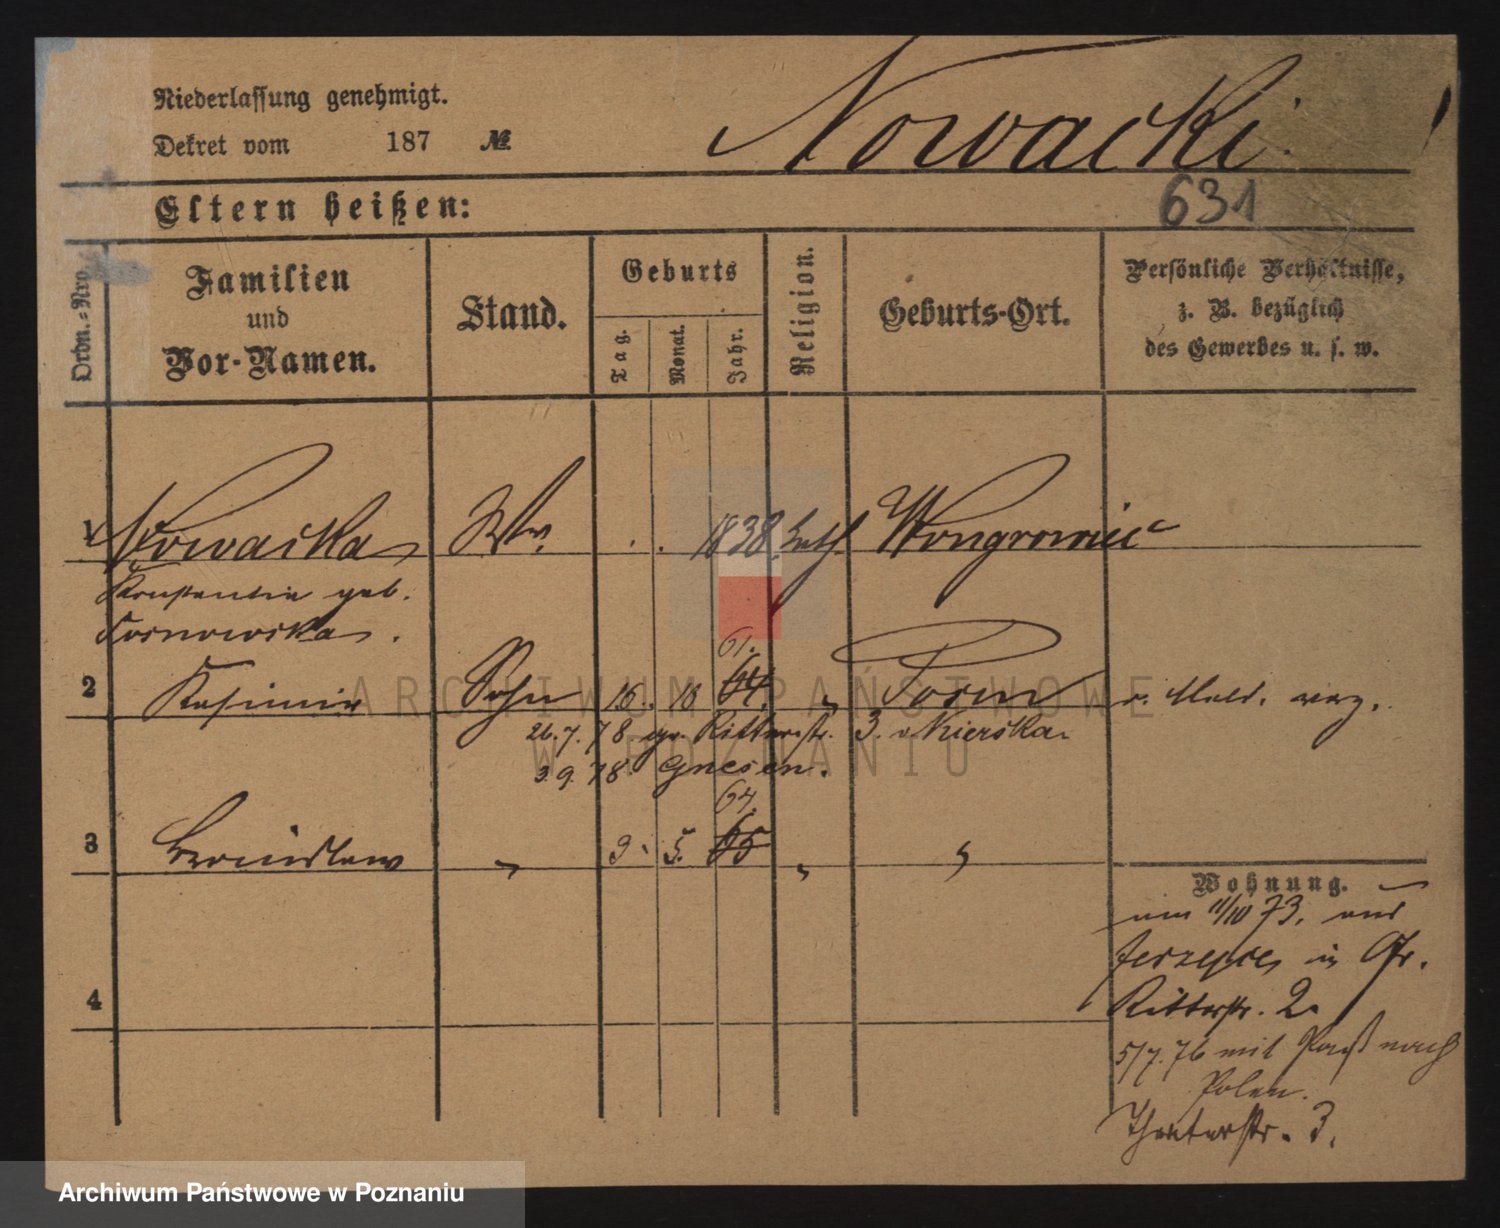 Niederlassung genehmigt.
Dekret vom 187 №
Nowacki
631
Eltern heißen:
Ordn.-Nro.
Familien
und
Vor-Namen.
Stand.
Geburts
Tag.
Monat.
Jahr.
Religion.
Geburts-Ort.
Persönliche Verhältnisse,
z. B. bezüglich
des Gewerbes u. s. w.
1 Nowacka Ww. 1838. kath. Wongrowiec
Konstantia geb.
61.
2 Kasimir Sohn 16. 10 64. " Posen
26.7.78. gr. Ritterstr. 3. v Kierska.
3.9.78 Gnesen.
64.
3 Bronislaw " 9. 5. 65 " "
4
Wohnung.
11/10 73. aus
in Gr.
Ritterstr. 2.
5/7.76 mit Paß nach
Polen.
Theaterstr. 3.
ARCHIWUM PAŃSTWOWE
W POZNANIU
Archiwum Państwowe w Poznaniu